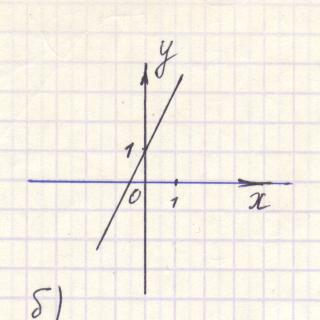 y
1
0 1 x
б)